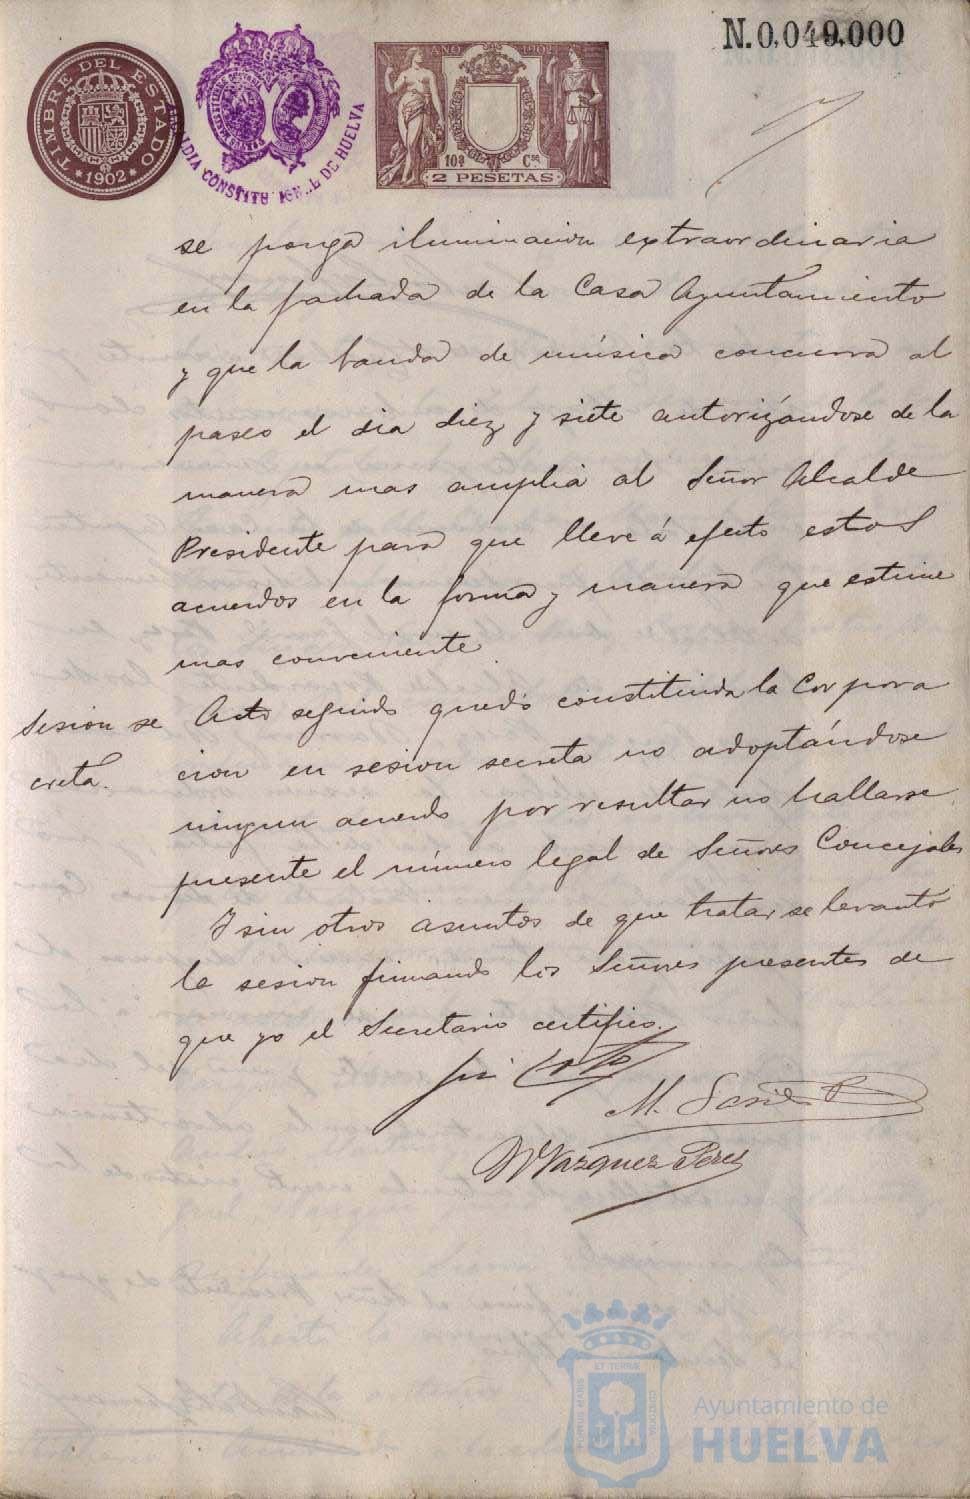 N.0,049,000
TIMBRE DEL ESTADO
*1902*
ALDIA CONSTITU ION.L DE HUELVA
AÑO 1902
10ª Cse
2 PESETAS
se ponga iluminacion extraordinaria
en la fachada de la Casa Ayuntamiento
y que la banda de música concurra al
paseo el dia diez y siete autorizándose de la
manera mas amplia al Señor Alcalde
Presidente para que lleve á efecto estos
acuerdos en la forma y manera que estime
mas conveniente.
Sesion se
creta.
Acto seguido quedó constituida la Corpora
cion en sesion secreta no adoptándose
ningun acuerdo por resultar no hallarse
presente el número legal de Señores Concejales
Y sin otros asuntos de que tratar se levantó
la sesion firmando los Señores presentes de
que yo el Secretario certifico.
M.
Vazquez Perez
ET TERRÆ
PORTUS MARIS
CUSTODIA
Ayuntamiento de
HUELVA